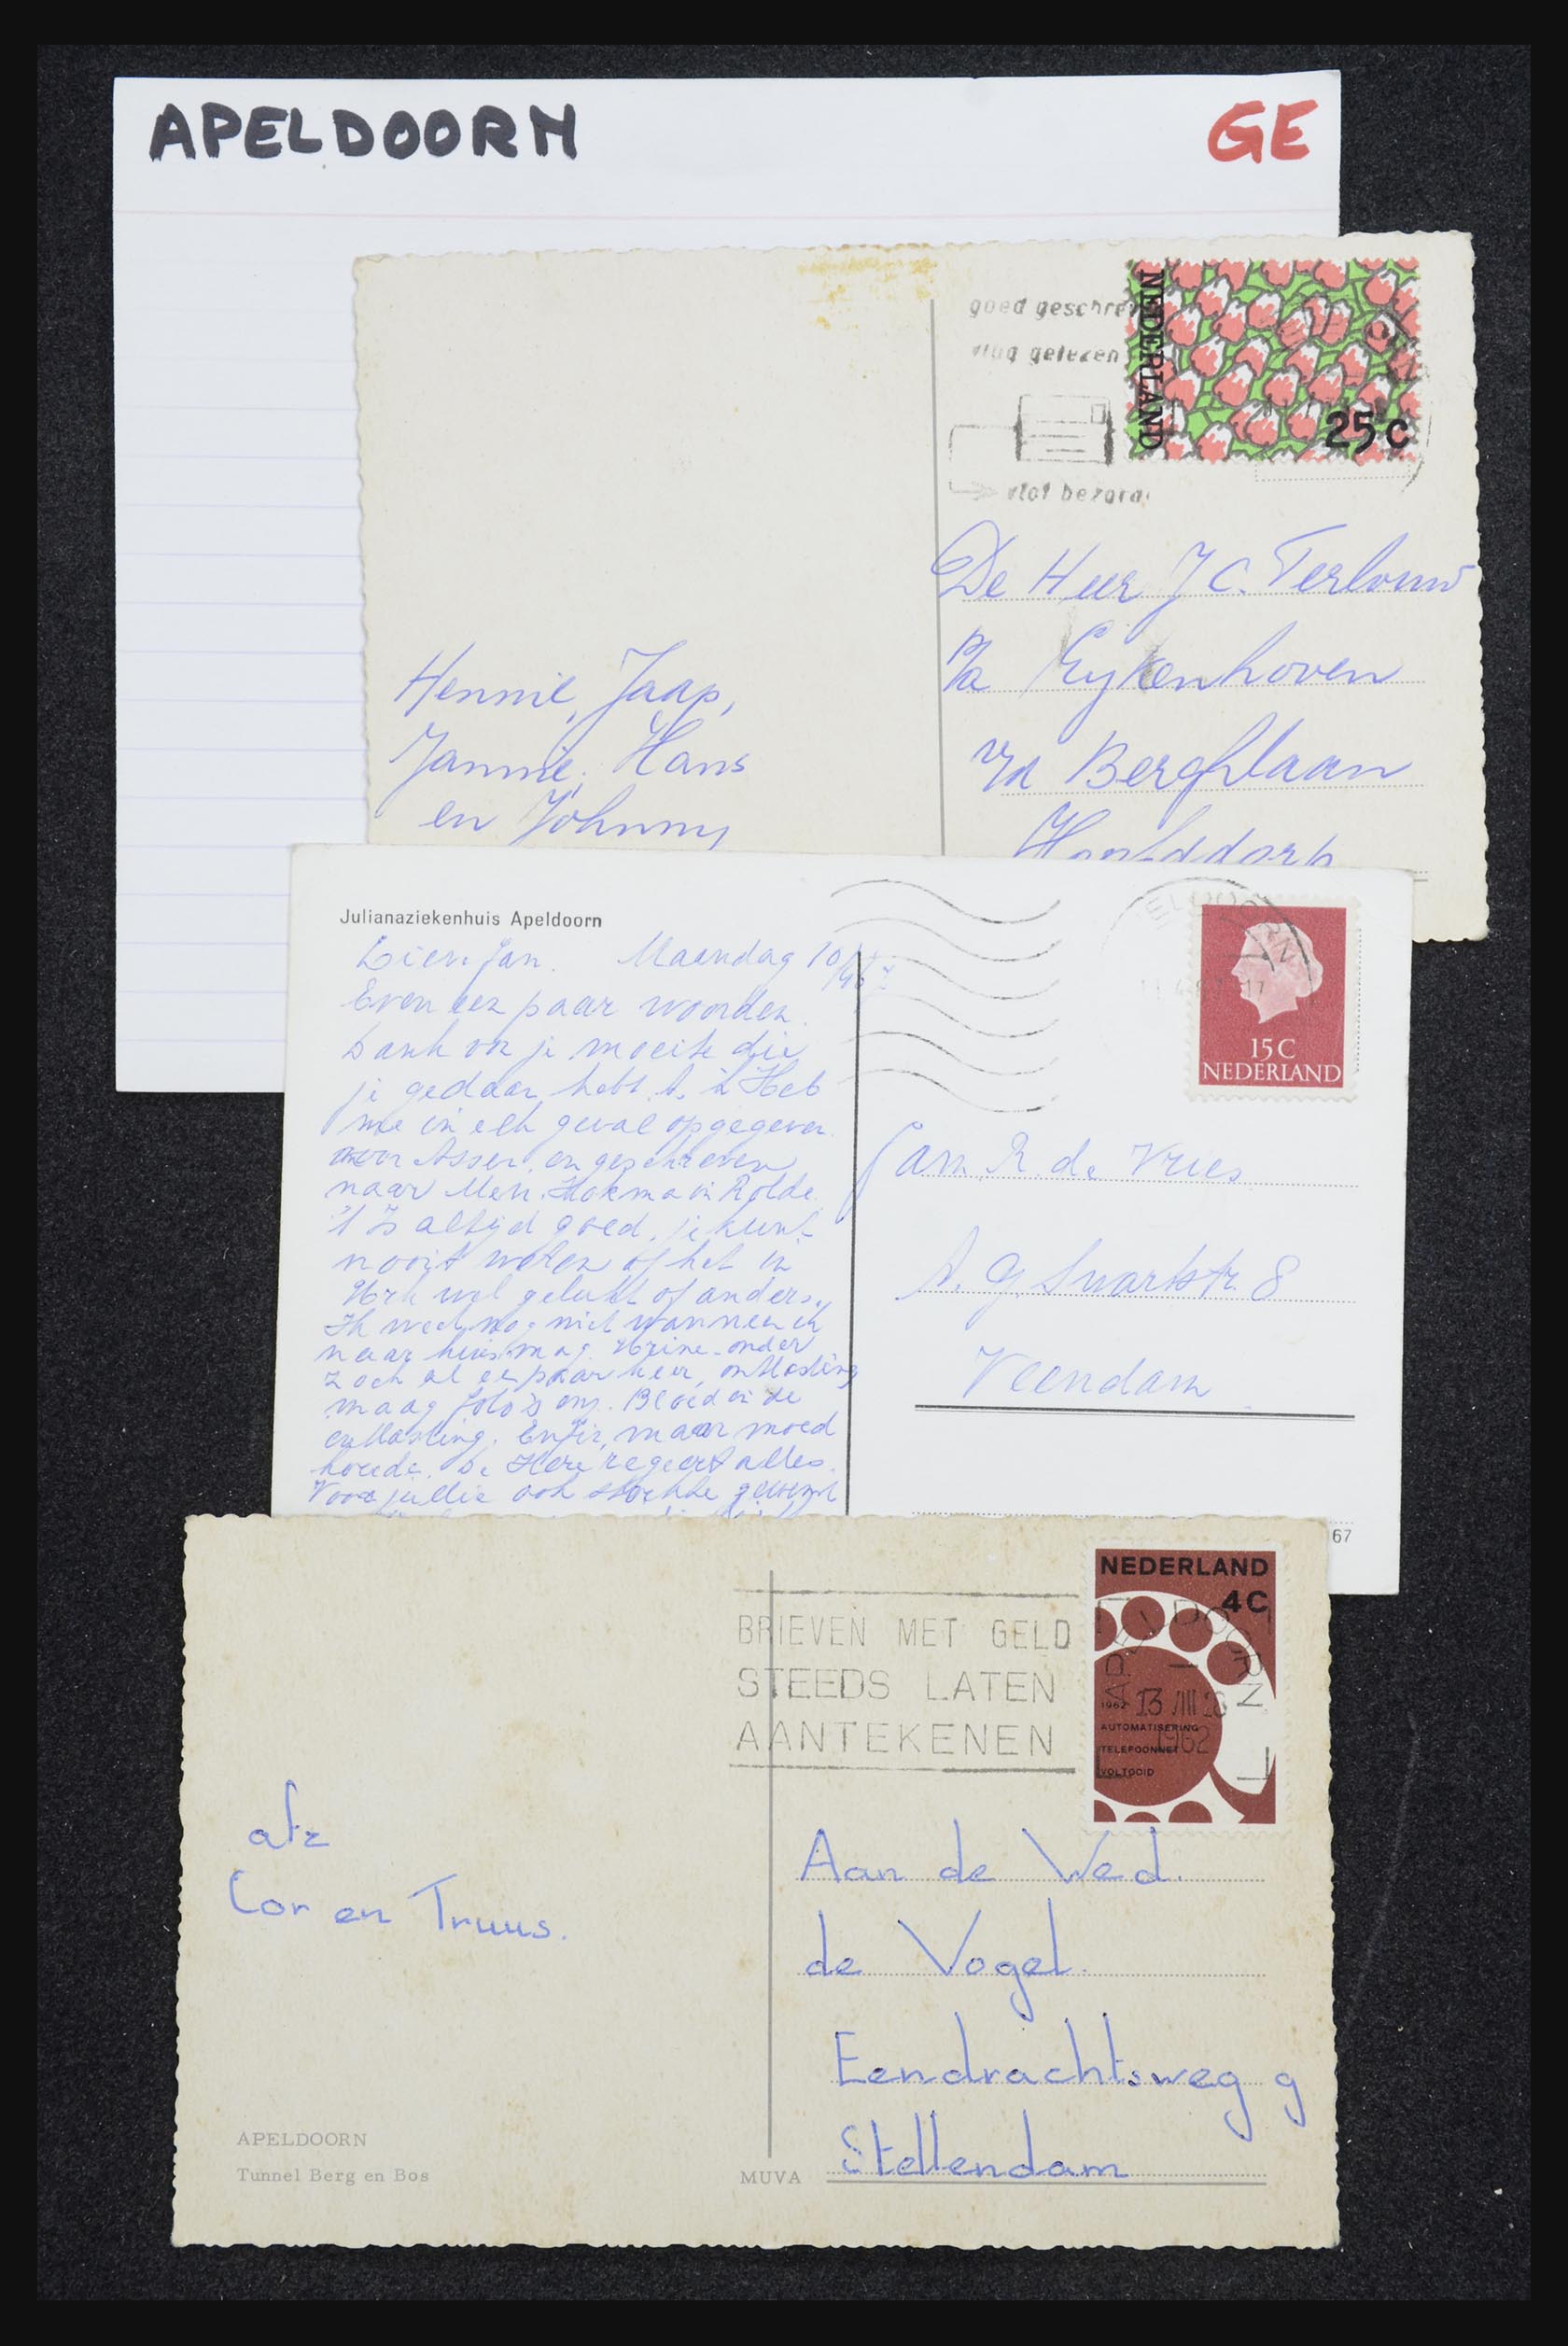 APELDOORN
GE
goed geschre
vlug gelezen
NEDERLAND
25c
vlot bezorg
De Heer J C. Terlouw
p/a Eykenhoven
v/d Berghlaan
Hoofddorp
Hennie, Jaap,
Jannie, Hans
en Johnny
Julianaziekenhuis Apeldoorn
15 C
NEDERLAND
Maandag 10/4 67
Even een paar woorden
Dank voor je moeite die
je gedaan hebt. Heb
me in elk geval opgegeven
voor Assen, en geschreven
naar Mevr. Hokma in Rolde.
't Is altijd goed, je kunt
nooit weten of het in
wel gelukt of anders.
Ik weet nog niet wanneer ik
naar huis mag. Urine-onder
zoek al een paar keer, ontlasting
maag foto's enz. Bloed in de
ontlasting. Enfin, maar moed
houden. De Here regeert alles.
Voor jullie ook sterkte gewenst
Fam. R. de Vries
A. G. Swartstr. 8
Veendam
67
NEDERLAND
4C
BRIEVEN MET GELD
STEEDS LATEN
AANTEKENEN
APELDOORN
13 VIII 20
1962
1962
AUTOMATISERING
TELEFOONNET
VOLTOOID
afz
Cor en Truus.
Aan de Wed.
de Vogel.
Eendrachtsweg 9
Stellendam
APELDOORN
Tunnel Berg en Bos
MUVA